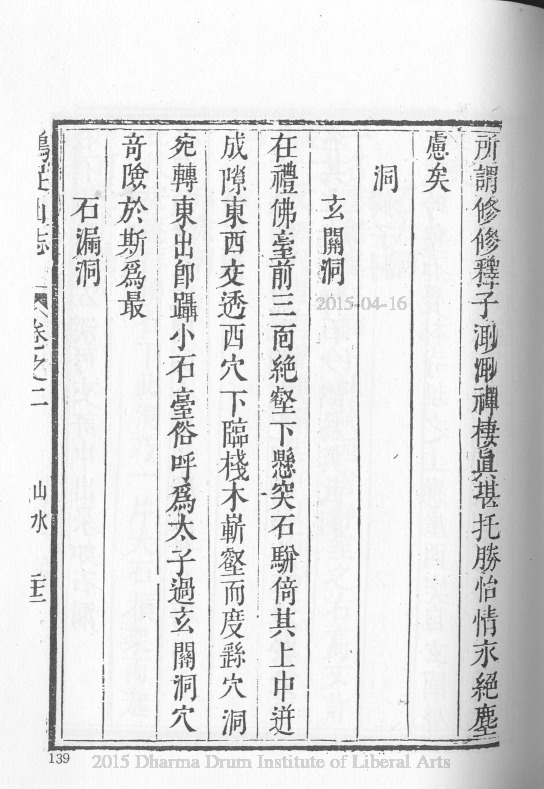 所謂修修釋子溮溮禪棲眞堪托勝怡情永絕塵
慮矣
洞
玄關洞
在禮佛臺前三面絕壑下懸突石駢倚其上中迸
成隙東西交透西穴下臨棧木嶄壑而度繇穴洞
宛轉東出卽躡小石臺俗呼爲太子過玄關洞穴
奇險於斯爲最
石漏洞
雞足山志
卷之二
山水
139
2015-04-16
2015 Dharma Drum Institute of Liberal Arts